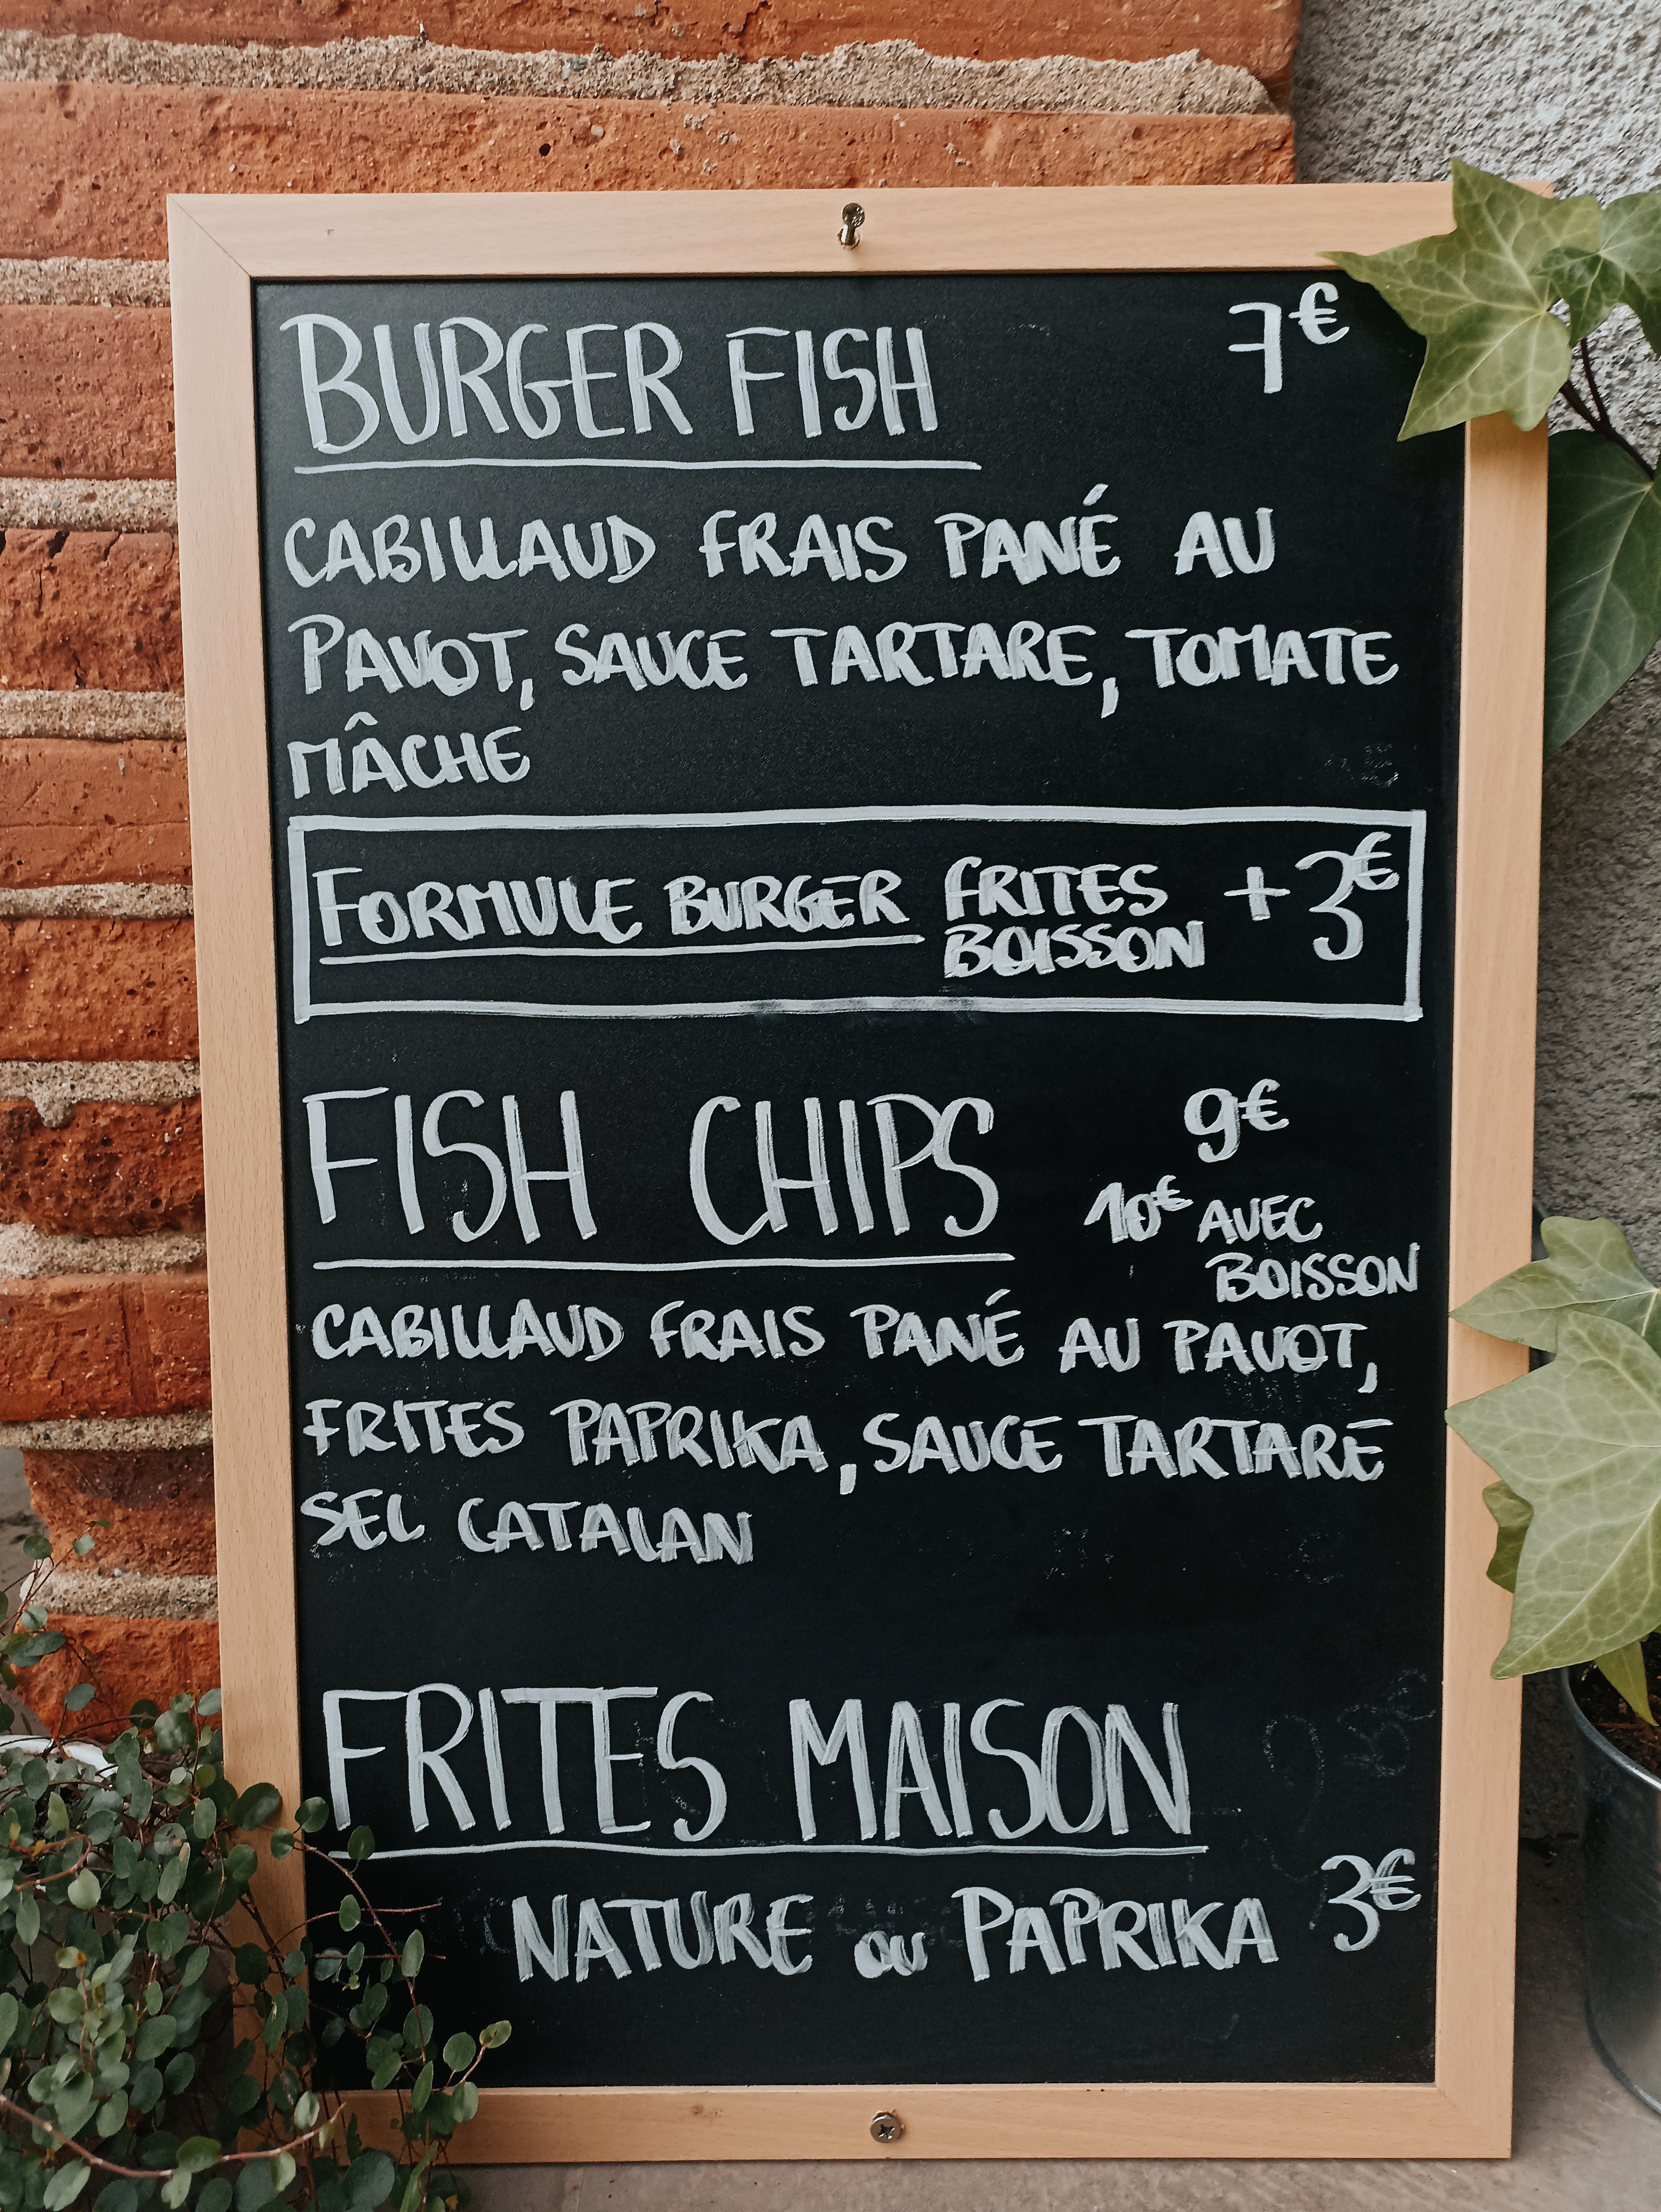 BURGER FISH 7€
CABILLAUD FRAIS PANÉ AU
PAVOT, SAUCE TARTARE, TOMATE
MÂCHE
FORMULE BURGER FRITES +3€
BOISSON
FISH CHIPS 9€
10€ AVEC
BOISSON
CABILLAUD FRAIS PANÉ AU PAVOT,
FRITES PAPRIKA, SAUCE TARTARE
SEL CATALAN
FRITES MAISON
NATURE OU PAPRIKA 3€